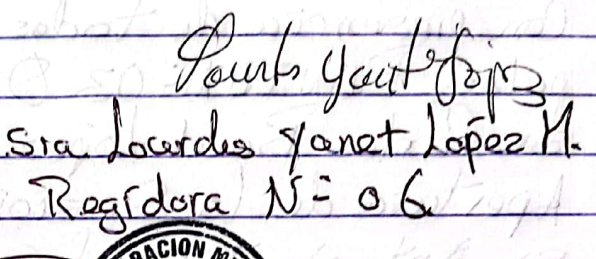 Lourdes Yanet López
Sra Lourdes Yanet López M.
Regídora N= 06
RACION M